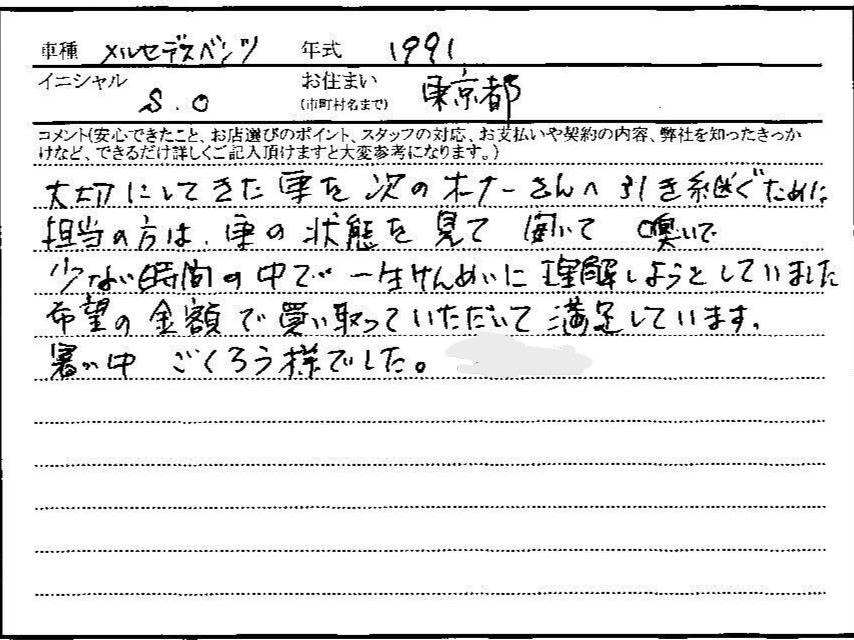 車種 メルセデスベンツ 年式 1991
イニシャル S.O お住まい(市町村名まで) 東京都
コメント(安心できたこと、お店選びのポイント、スタッフの対応、お支払いや契約の内容、弊社を知ったきっか
けなど、できるだけ詳しくご記入頂けますと大変参考になります。)
大切にしてきた車を次のオーナーさんへ引き継ぐために
担当の方は、車の状態を見て 聞いて 嗅いで
少ない時間の中で一生けんめいに理解しようとしていました
希望の金額で買い取っていただいて満足しています。
暑い中 ごくろう様でした。